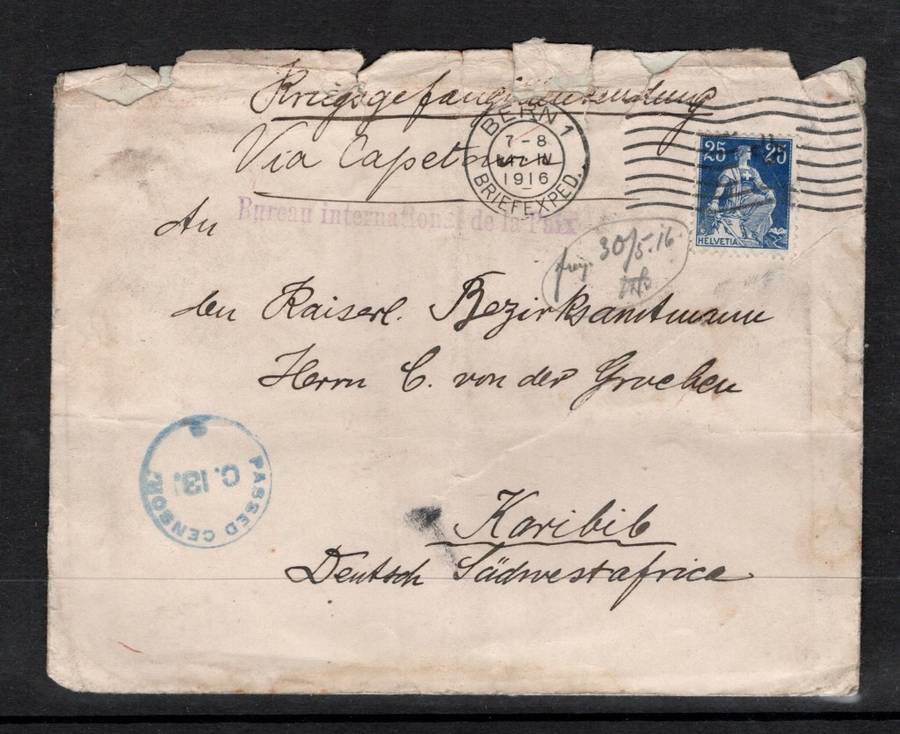 Kriegsgefangenensendung
Via Capetown
BERN 1
7-8
IV
1916
BRIEFEXPED.
25 25
HELVETIA
Bureau international de la Paix
An
30/5.16
den Kaiserl. Bezirksamtmann
Herrn C. von der Groeben
PASSED CENSOR
C. 13.
Karibib
Deutsch Südwestafrica